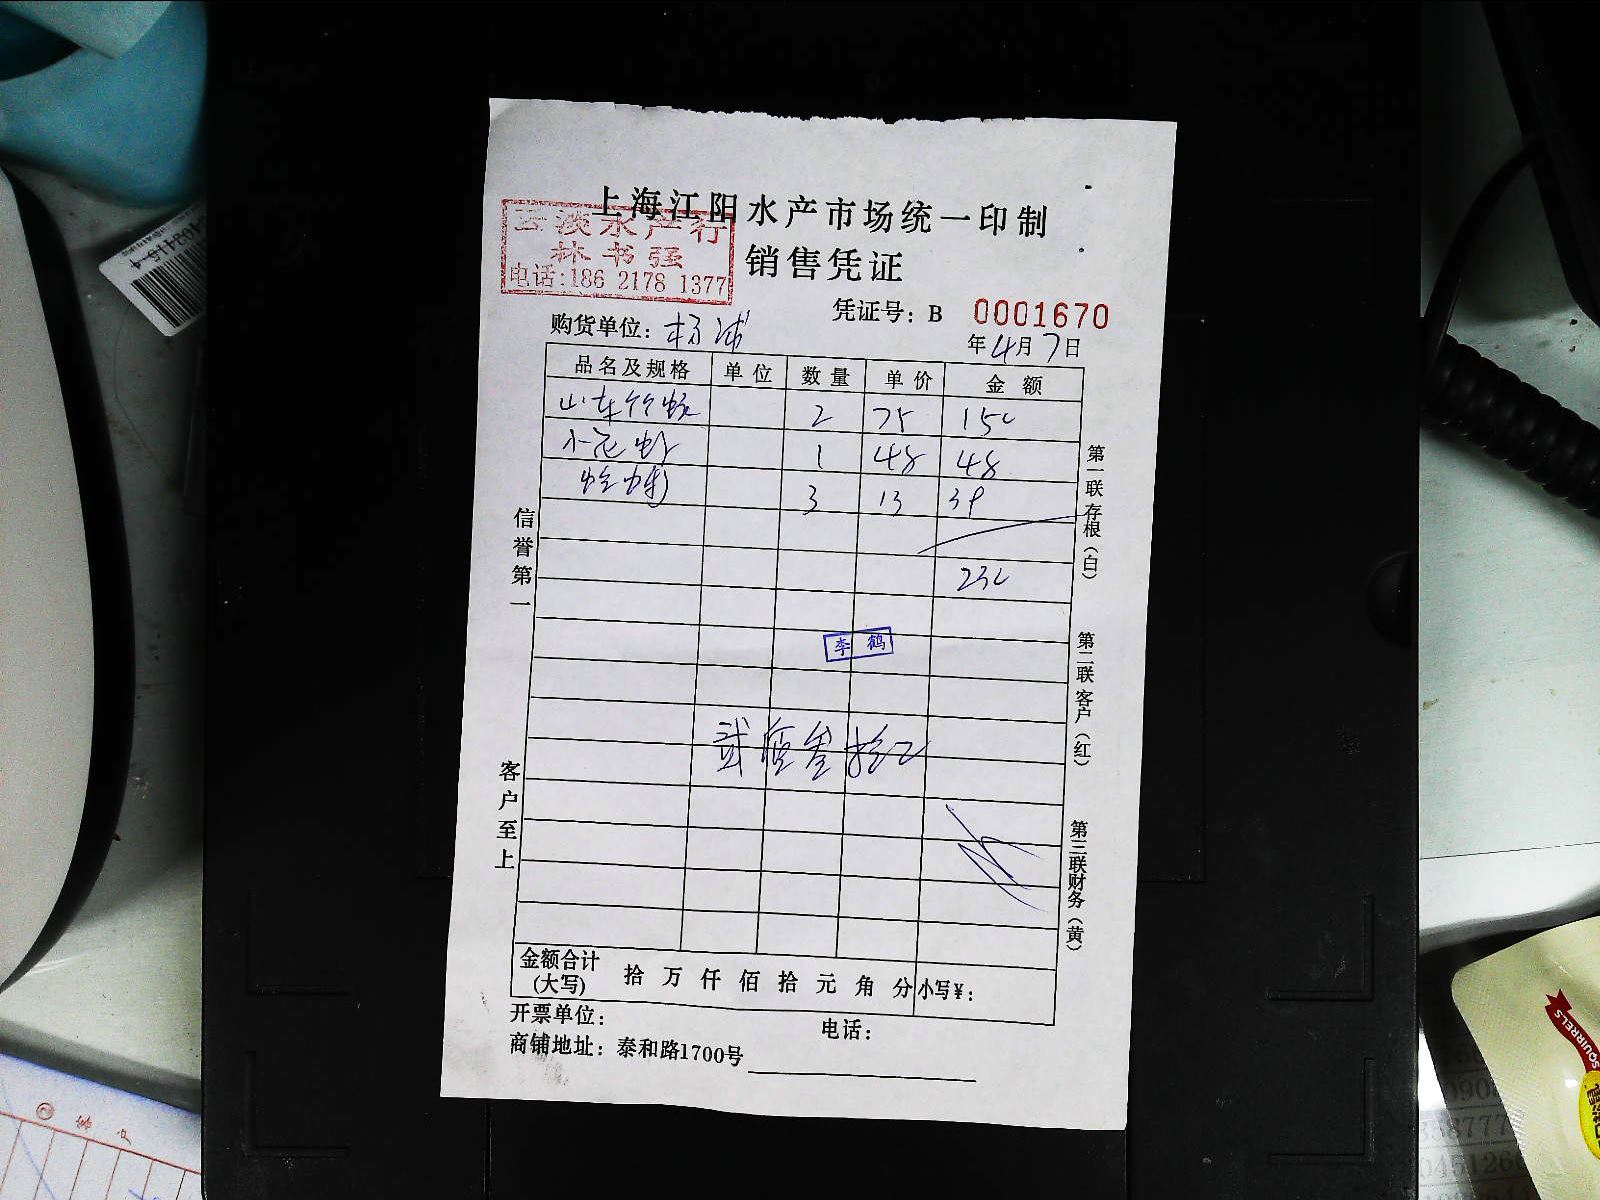 上海江阳水产市场统一印制
云淡水产行
林书强
电话:186 2178 1377
销售凭证
凭证号: B 0001670
购货单位: 杨浦
年4月7日
品名及规格 单位 数量 单价 金额
山东竹蛏 2 75 150
小花蛤 1 48 48
蛤蜊 3 13 39
230
李鹤
贰佰叁拾元
信誉第一
客户至上
第一联存根(白)
第二联客户(红)
第三联财务(黄)
金额合计(大写) 拾 万 仟 佰 拾 元 角 分 小写¥:
开票单位: 电话:
商铺地址: 泰和路1700号
SQUIRRELS
客户